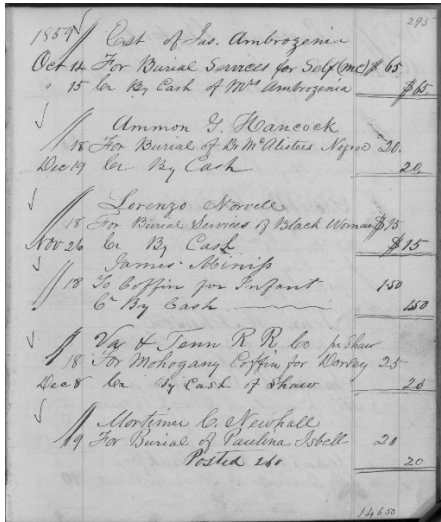 295
1859 Est of Jas. Ambrogenia
Oct 14 For Burial Services for Self (mc) $65
" 15 Cr By Cash of Mrs Ambrogenia $65.
Ammon G. Hancock
18 For Burial of Dr McAlisters Negroe 20.
Dec 19 Cr By Cash 20
Lorenzo Norvell
18 For Burial Services of Black Woman $15
Nov 26 Cr By Cash $15
James Miniss
18 To Coffin for Infant 150
Cr By Cash 150
Va & Tenn R R Co pr Shaw
18 For Mahogany Coffin for Dorsey 25
Dec 8 Cr By Cash of Shaw 25
Mortimer C. Newhall
19 For Burial of Paulina Isbell 20
Posted 260 20
14650